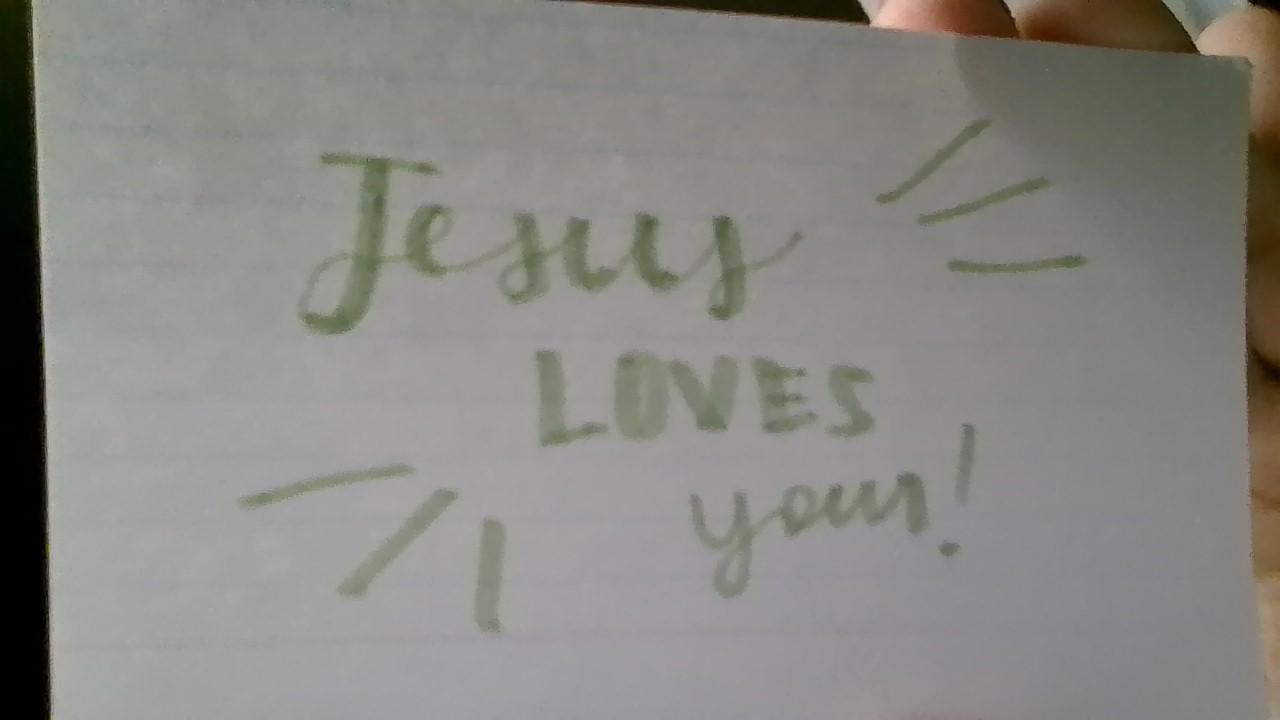 Jesus
LOVES
you!